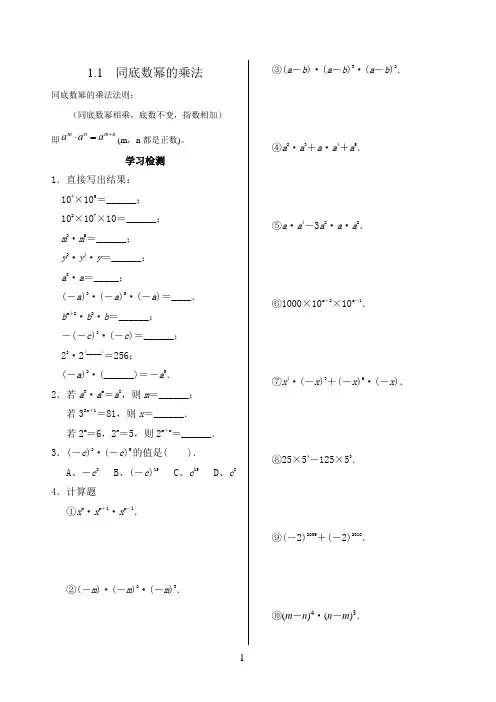 1.1 同底数幂的乘法
同底数幂的乘法法则：
（同底数幂相乘，底数不变，指数相加）
即 aᵐ·aⁿ＝aᵐ⁺ⁿ (m，n 都是正数)。
学习检测
1．直接写出结果：
10⁴×10⁵＝______；
10²×10⁷×10＝______；
m³·m⁶＝______；
y³·y⁴·y＝______；
a²·a＝_____；
(－a)²·(－a)⁵·(－a)＝____．
bⁿ⁺²·b²·b＝______；
－(－c)³·(－c)＝______；
2³·2^(____)＝256；
(－a)²·(______)＝－a⁵．
2．若 a³·aᵐ＝a⁸，则 m＝______；
若 3³ˣ⁺¹＝81，则 x＝______．
若 2ᵐ＝6，2ⁿ＝5，则 2ᵐ⁺ⁿ＝______．
3．(－c)³·(－c)⁵的值是( )．
A、－c⁸ B、(－c)¹⁵ C、c¹⁵ D、c⁸
4．计算题
①xⁿ·xⁿ⁺¹·xⁿ⁻¹．
②(－m)·(－m)²·(－m)³．
③(a－b)·(a－b)³·(a－b)²．
④a²·a³＋a·a⁴＋a⁵．
⑤a·a⁴－3a²·a·a²．
⑥1000×10ᵃ⁺²×10ᵃ⁻¹．
⑦x⁴·(－x)³＋(－x)⁶·(－x)．
⑧25×5⁴－125×5³．
⑨(－2)²⁰⁰⁹＋(－2)²⁰¹⁰．
⑩(m－n)⁴·(n－m)³．
1